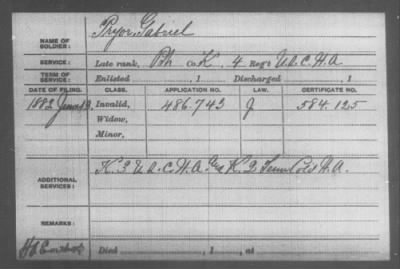 NAME OF SOLDIER: Pryor, Gabriel
SERVICE: Late rank, Co. K, 4 Reg't U.S.C.H.A
TERM OF SERVICE: Enlisted , 1 Discharged , 1
DATE OF FILING. CLASS. APPLICATION NO. LAW. CERTIFICATE NO.
1882 Invalid, 486.743 J 584.125
Widow,
Minor,
ADDITIONAL SERVICES: K. 3 U.S.C.H.A. K. 2 Tenn Cold H.A.
REMARKS:
Died , 1 , at